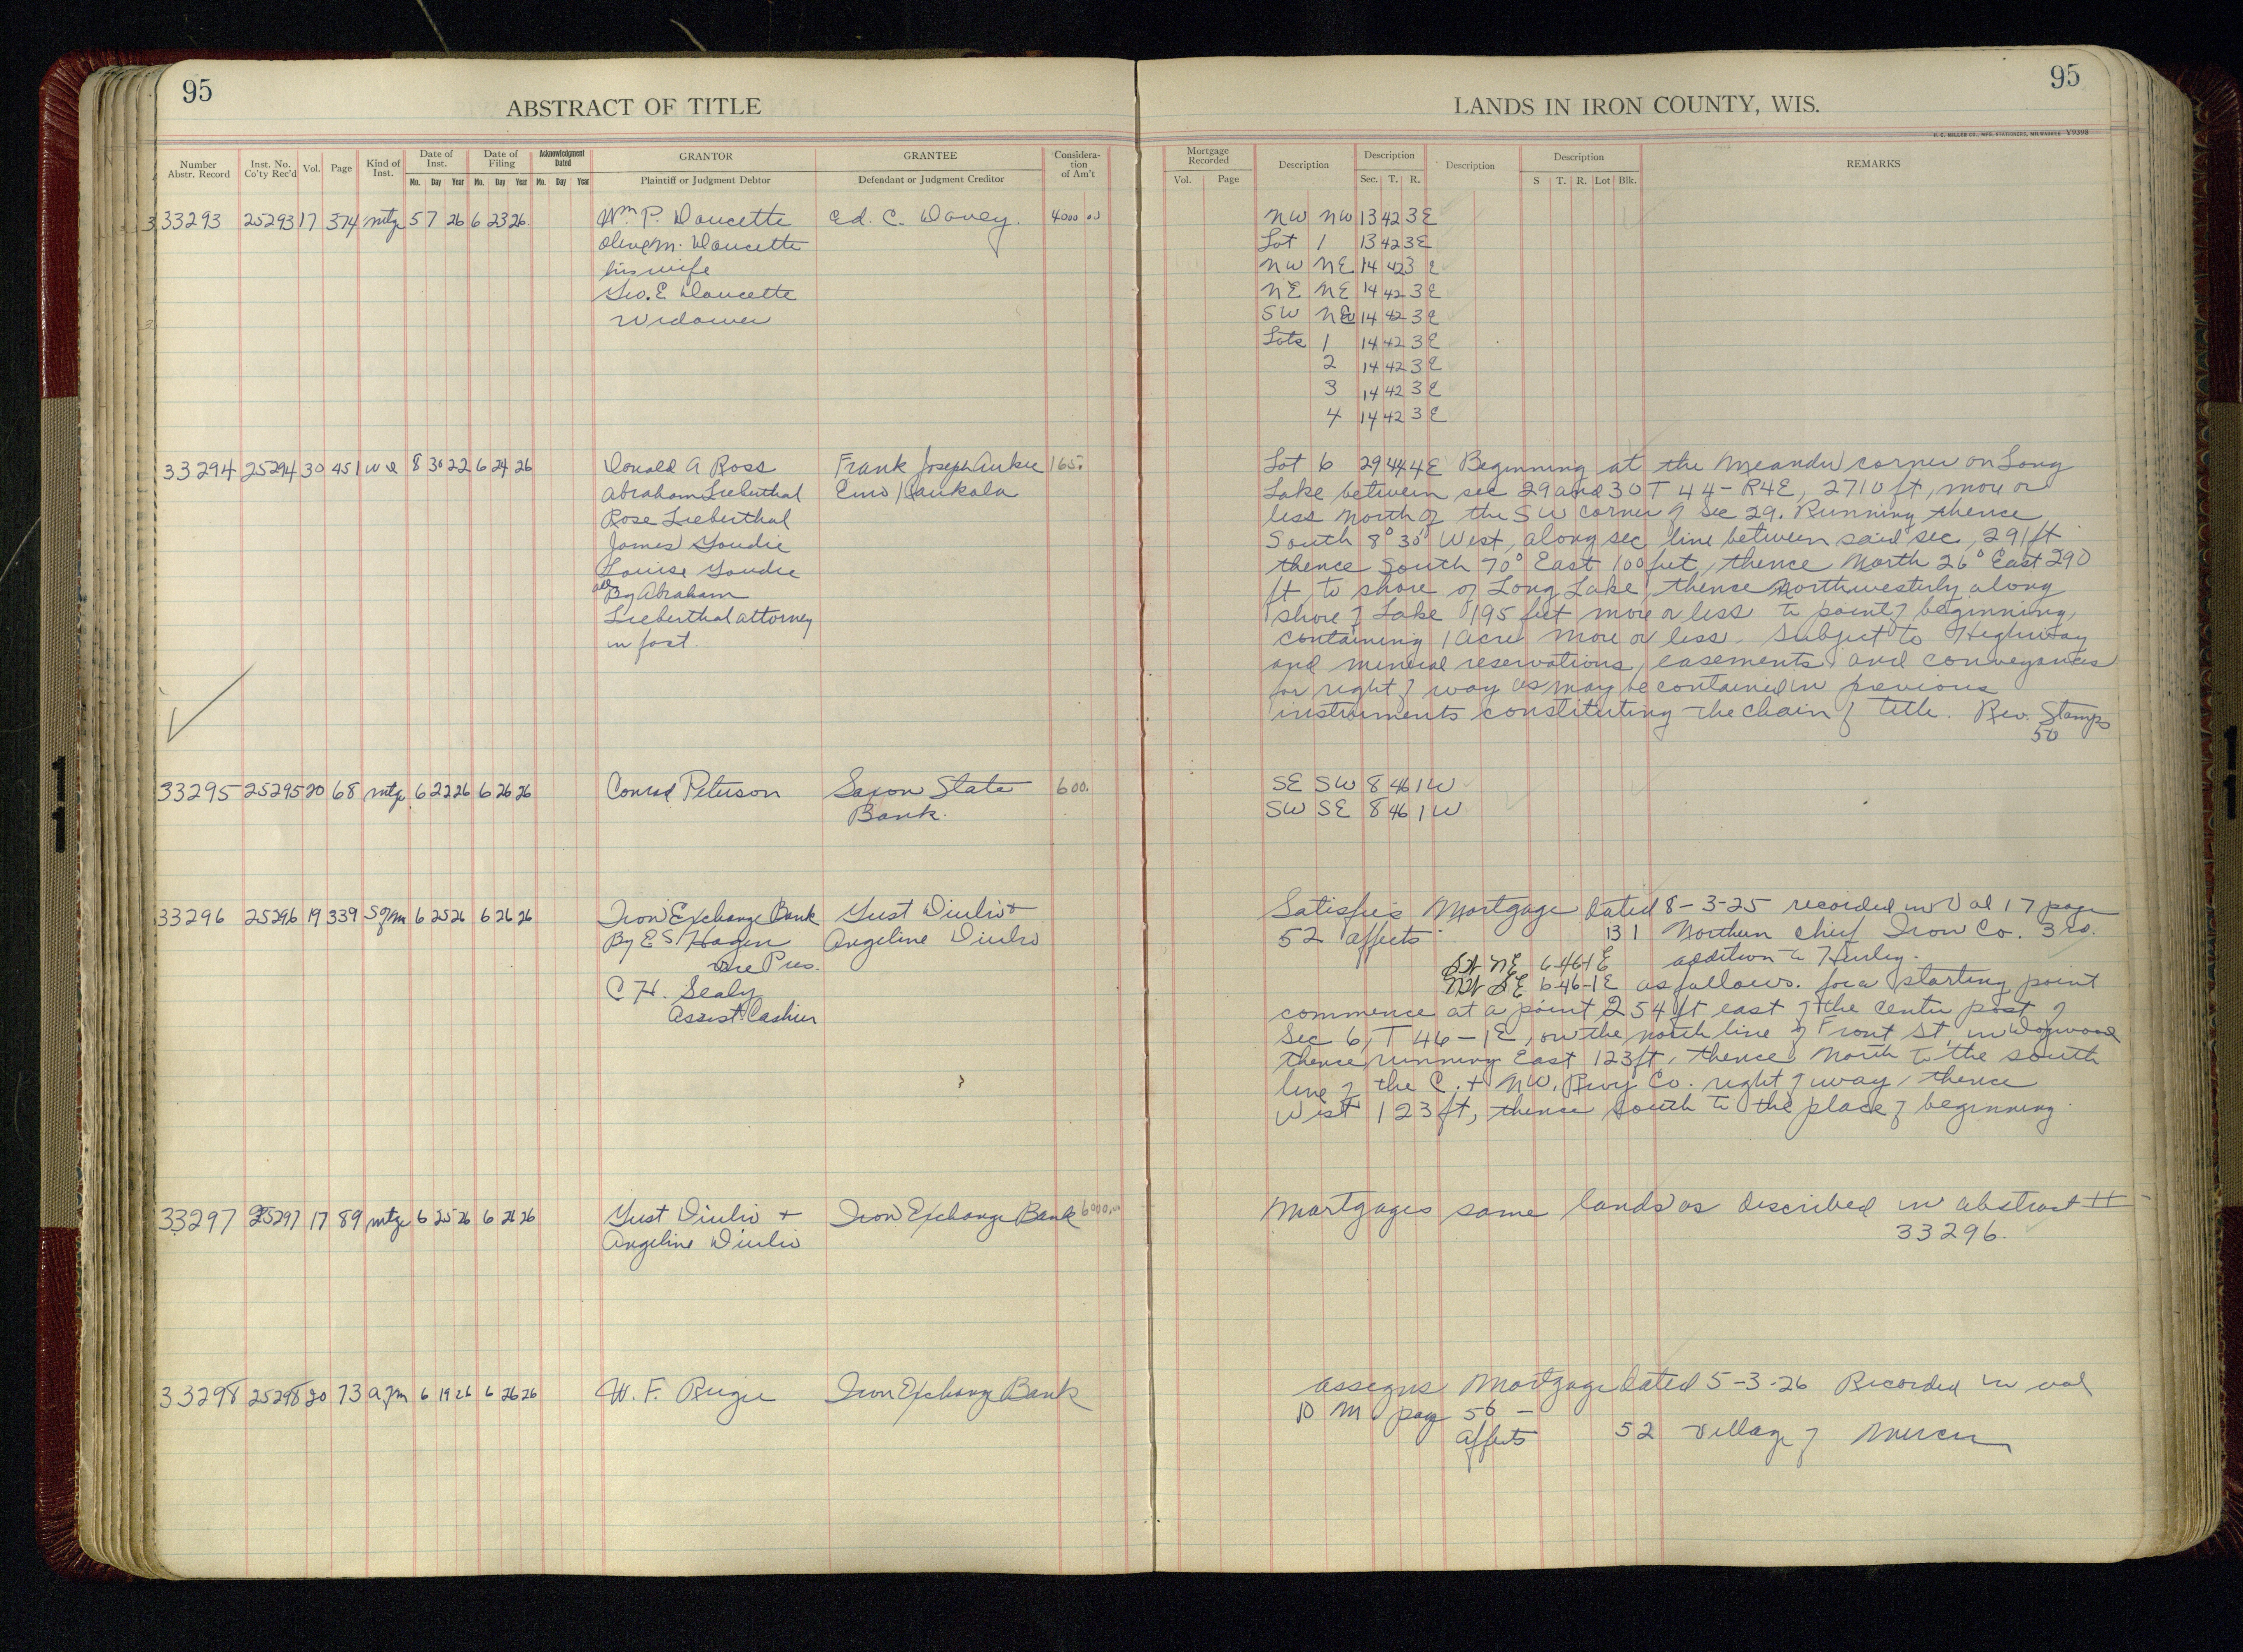 95
ABSTRACT OF TITLE
Number Abstr. Record | Inst. No. Co'ty Rec'd | Vol. | Page | Kind of Inst. | Date of Inst. Mo. Day Year | Date of Filing Mo. Day Year | Acknowledgment Dated Mo. Day Year | GRANTOR Plaintiff or Judgment Debtor | GRANTEE Defendant or Judgment Creditor | Consideration of Am't
33293 25293 17 374 mtg 5 7 26 6 23 26 Wm P. Doucette Ed. C. Dovey. 4000 00
Olive M. Doucette
his wife
Geo. E Doucette
Widower
33294 25294 30 451 wd 8 30 22 6 24 26 Donald A Ross Frank Joseph 165.
Abraham Lieberthal Eino Kaukola
Rose Lieberthal
James Goudie
Louise Goudie
all By Abraham
Lieberthal attorney
in fact.
33295 25295 20 68 mtg 6 22 26 6 26 26 Conrad Peterson Saxon State 600.
Bank.
33296 25296 19 339 S of m 6 25 26 6 26 26 Iron Exchange Bank Gust Diulio +
By E S Hagen Angeline Diulio
Vice Pres.
C H. Sealy
Assist Cashier
33297 25297 17 89 mtg 6 25 26 6 26 26 Gust Diulio + Iron Exchange Bank 6000.00
Angeline Diulio
33298 25298 20 73 a of m 6 19 26 6 26 26 W. F. Ruger Iron Exchange Bank
95
LANDS IN IRON COUNTY, WIS.
H. C. MILLER CO., MFG. STATIONERS, MILWAUKEE V9398
Mortgage Recorded Vol. Page | Description | Description Sec. T. R. | Description | Description S T. R. Lot Blk. | REMARKS
NW NW 13 42 3E
Lot 1 13 42 3E
NW NE 14 42 3E
NE NE 14 42 3E
SW NE 14 42 3E
Lots 1 14 42 3E
2 14 42 3E
3 14 42 3E
4 14 42 3E
Lot 6 29 44 4E Beginning at the Meander corner on Long
Lake between sec 29 and 30 T 44 - R4E, 2710 ft, more or
less North of the SW corner of Sec 29. Running thence
South 8° 30' West, along sec line between said sec, 291 ft
thence South 70° East 100 feet, thence North 26° East 290
ft, to shore of Long Lake, thence Northwesterly along
shore of Lake 195 feet more or less to point of beginning,
containing 1 acre more or less. Subject to Highway
and mineral reservations, easements and conveyances
for right of way as may be contained in previous
instruments constituting the chain of title. Rev. Stamps
50
SE SW 8 46 1W
SW SE 8 46 1W
Satisfies Mortgage dated 8-3-25 recorded in Vol 17 page
52 affects 13 1 Northern Chief Iron Co. 3rd.
SW NE 6-46-1E addition to Hurley.
NW SE 6-46-1E as follows. for a starting point
commence at a point 254 ft east of the center post of
Sec 6, T 46-1E, on the north line of Front St, in
thence running East 123 ft, thence North to the south
line of the C. + NW. Rwy Co. right of way, thence
West 123 ft, thence South to the place of beginning.
Mortgages same lands as described in abstract #
33296.
Assigns Mortgage dated 5-3-26 Recorded in vol
M page 56 -
affects 52 Village of Mercer